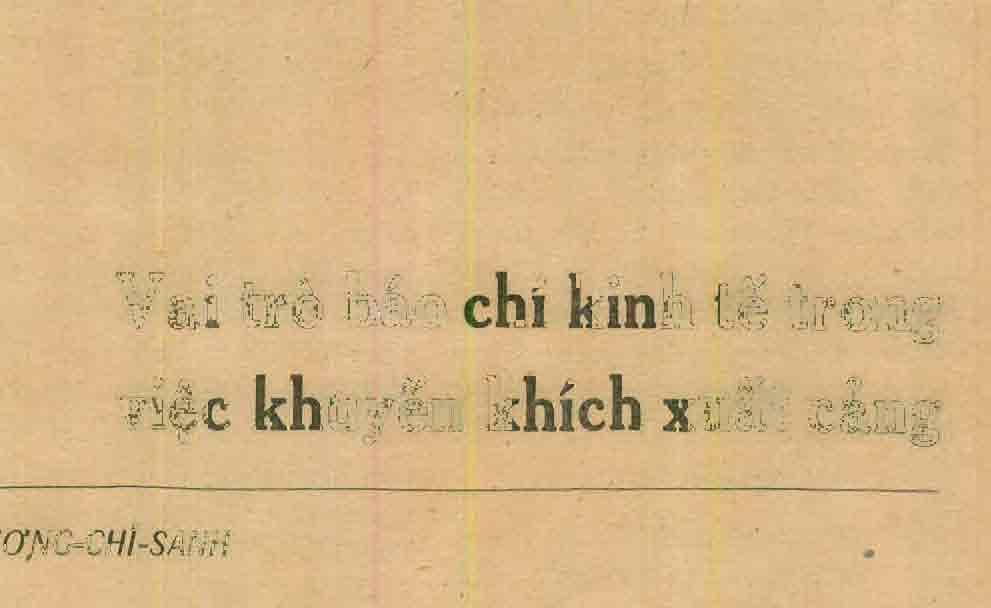 Vai trò báo chí kinh tế trong
việc khuyến khích xuất cảng
ƠNG-CHÍ-SANH